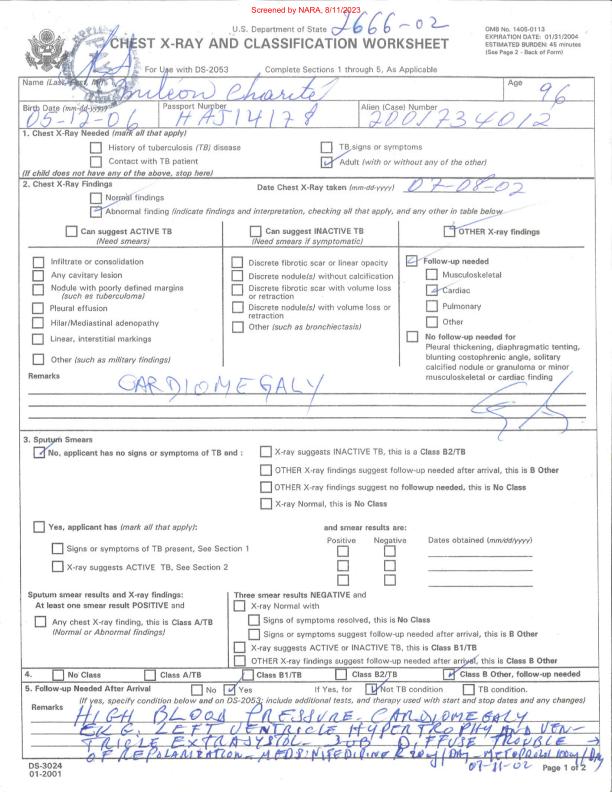 Screened by NARA, 8/11/2023
U.S. Department of State
2666-02
OMB No. 1405-0113
EXPIRATION DATE: 01/31/2004
ESTIMATED BURDEN: 45 minutes
(See Page 2 - Back of Form)
CHEST X-RAY AND CLASSIFICATION WORKSHEET
For Use with DS-2053 Complete Sections 1 through 5, As Applicable
Name (Last, First, MI) Charité
Age 96
Birth Date (mm-dd-yyyy) 05-12-06
Passport Number
Alien (Case) Number 2001734012
1. Chest X-Ray Needed (mark all that apply)
History of tuberculosis (TB) disease
TB signs or symptoms
Contact with TB patient
Adult (with or without any of the other)
(If child does not have any of the above, stop here)
2. Chest X-Ray Findings
Date Chest X-Ray taken (mm-dd-yyyy) 07-08-02
Normal findings
Abnormal finding (indicate findings and interpretation, checking all that apply, and any other in table below
Can suggest ACTIVE TB
(Need smears)
Can suggest INACTIVE TB
(Need smears if symptomatic)
OTHER X-ray findings
Infiltrate or consolidation
Any cavitary lesion
Nodule with poorly defined margins
(such as tuberculoma)
Pleural effusion
Hilar/Mediastinal adenopathy
Linear, interstitial markings
Other (such as military findings)
Discrete fibrotic scar or linear opacity
Discrete nodule(s) without calcification
Discrete fibrotic scar with volume loss
or retraction
Discrete nodule(s) with volume loss or
retraction
Other (such as bronchiectasis)
Follow-up needed
Musculoskeletal
Cardiac
Pulmonary
Other
No follow-up needed for
Pleural thickening, diaphragmatic tenting,
blunting costophrenic angle, solitary
calcified nodule or granuloma or minor
musculoskeletal or cardiac finding
Remarks
CARDIOMEGALY
3. Sputum Smears
No, applicant has no signs or symptoms of TB and :
X-ray suggests INACTIVE TB, this is a Class B2/TB
OTHER X-ray findings suggest follow-up needed after arrival, this is B Other
OTHER X-ray findings suggest no followup needed, this is No Class
X-ray Normal, this is No Class
Yes, applicant has (mark all that apply):
and smear results are:
Positive Negative Dates obtained (mm/dd/yyyy)
Signs or symptoms of TB present, See Section 1
X-ray suggests ACTIVE TB, See Section 2
Sputum smear results and X-ray findings:
At least one smear result POSITIVE and
Any chest X-ray finding, this is Class A/TB
(Normal or Abnormal findings)
Three smear results NEGATIVE and
X-ray Normal with
Signs of symptoms resolved, this is No Class
Signs or symptoms suggest follow-up needed after arrival, this is B Other
X-ray suggests ACTIVE or INACTIVE TB, this is Class B1/TB
OTHER X-ray findings suggest follow-up needed after arrival, this is Class B Other
4. No Class Class A/TB Class B1/TB Class B2/TB Class B Other, follow-up needed
5. Follow-up Needed After Arrival No Yes If Yes, for Not TB condition TB condition.
(If yes, specify condition below and on DS-2053; include additional tests, and therapy used with start and stop dates and any changes)
Remarks HIGH BLOOD PRESSURE - CARDIOMEGALY
EKG: LEFT VENTRICLE HYPERTROPHY AND VEN-
TRICLE EXTRASYSTOL - SUB DIFFUSE TROUBLE →
OF REPOLARIZATION - MEDS: NIFEDIPINE
07-11-02
DS-3024
01-2001
Page 1 of 2